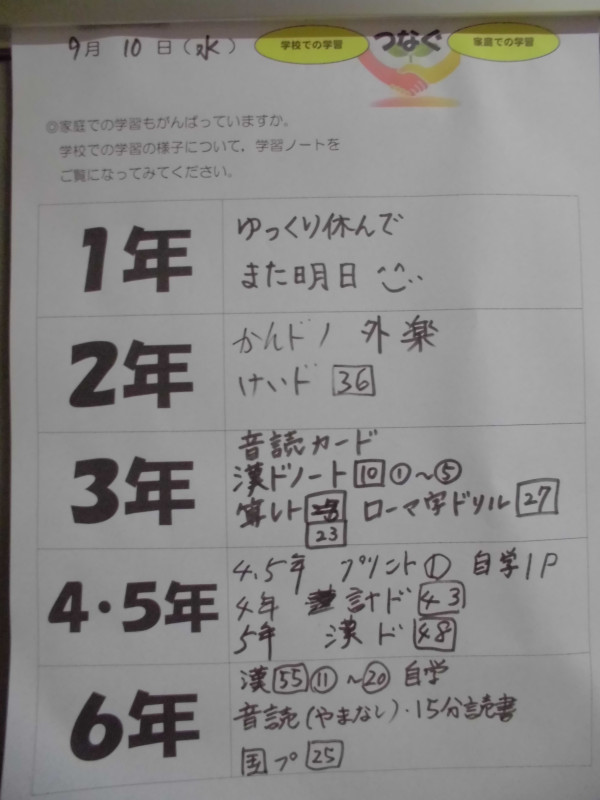 9月 10日(水)
学校での学習 つなぐ 家庭での学習
◎家庭での学習もがんばっていますか。
学校での学習の様子について、学習ノートを
ご覧になってみてください。
1年
ゆっくり休んで
また明日
2年
かんドノ 外 楽
けいド 36
3年
音読カード
漢ドノート 10 ①~⑤
算レト 23 ローマ字ドリル 27
4・5年
4.5年 プリント① 自学1P
4年 計ド 43
5年 漢ド 48
6年
漢 55 ⑪~⑳ 自学
音読(やまなし)・15分読書
国プ 25